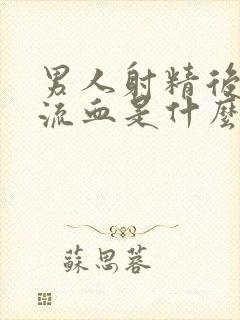 男人射精後
流血是什麼
蘇思蓉